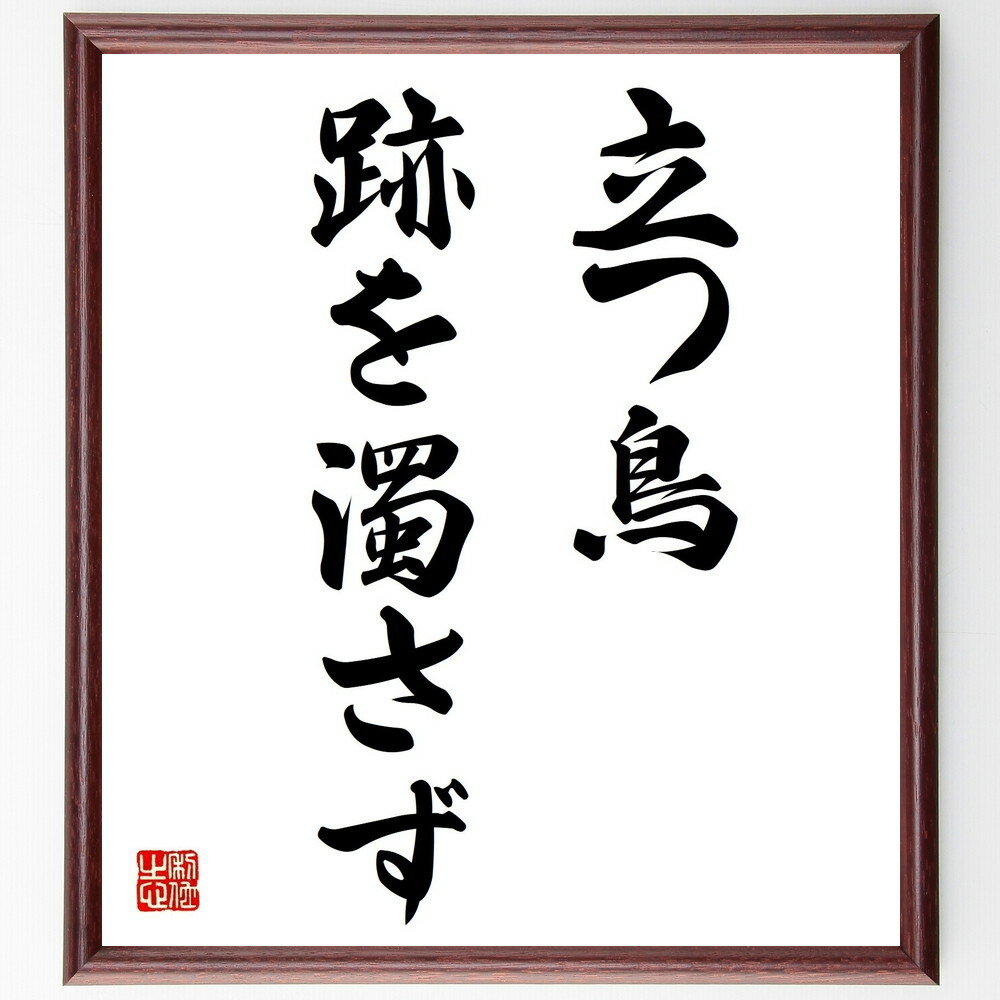 立つ鳥
跡を濁さず